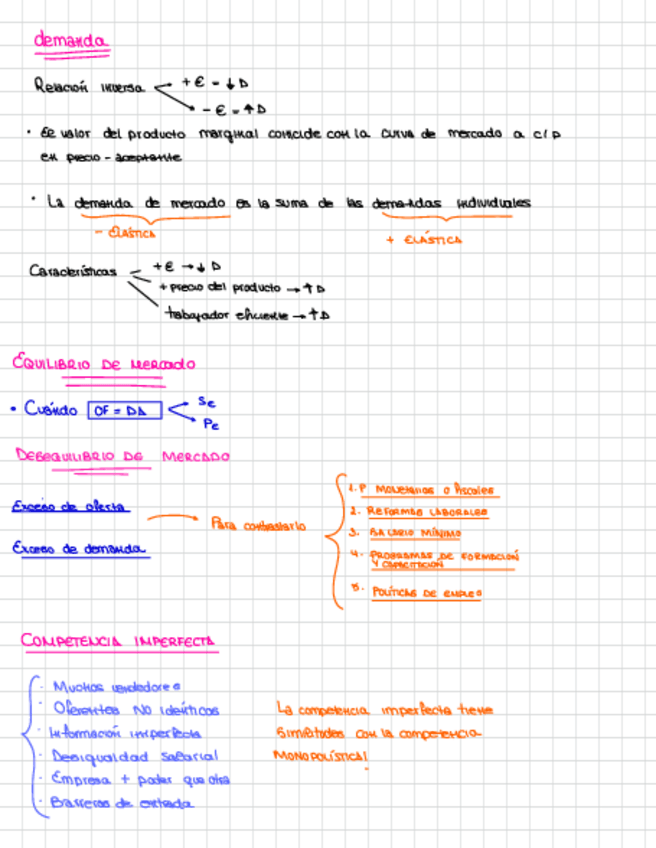 demanda
Relación inversa + € - ↓ D
- € - ↑ D
· El valor del producto marginal coincide con la curva de mercado a c/p
en precio - aceptante
· La demanda de mercado es la suma de las demandas individuales
- ELÁSTICA
+ ELÁSTICA
Características + € → ↓ D
+ precio del producto → ↑ D
trabajador eficiente → ↑ D
EQUILIBRIO DE MERCADO
• Cuándo OF = DA Se
Pe
DESEQUILIBRIO DE MERCADO
Exceso de oferta
Exceso de demanda
Para contrastarlo
1. P MONETARIAS O FISCALES
2. REFORMAS LABORALES
3. SALARIO MÍNIMO
4. PROGRAMAS DE FORMACIÓN
Y CAPACITACIÓN
5. POLÍTICAS DE EMPLEO
COMPETENCIA IMPERFECTA
· Muchos vendedores
· Oferentes NO idénticos
· Información imperfecta
· Desigualdad salarial
· Empresa + poder que otra
· Barreras de entrada
La competencia imperfecta tiene
similitudes con la competencia
MONOPOLÍSTICA!